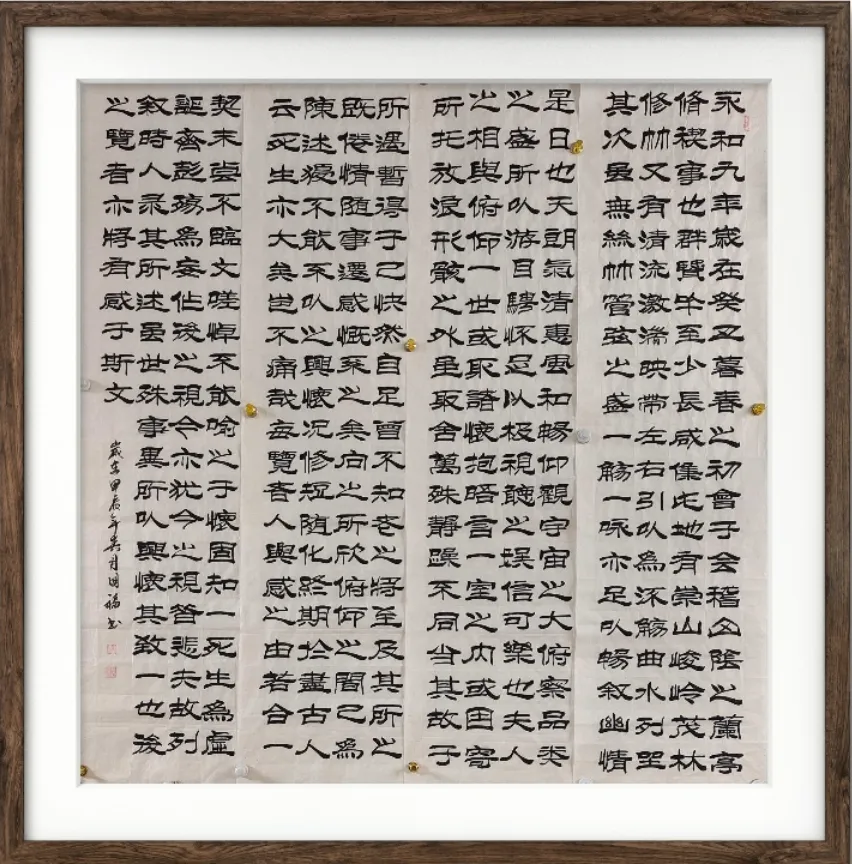 永和九年歲在癸丑暮春之初會于会稽山陰之蘭亭
脩禊事也群賢畢至少長咸集此地有崇山峻岭茂林
修竹又有清流激湍映帶左右引以為流觴曲水列坐
其次虽無絲竹管弦之盛一觴一咏亦足以暢叙幽情
是日也天朗氣清惠風和暢仰觀宇宙之大俯察品类
之盛所以游目騁怀足以极視聽之娱信可樂也夫人
之相與俯仰一世或取諸懷抱晤言一室之內或因寄
所托放浪形骸之外虽取舍萬殊靜躁不同当其故于
所遇暫得于己快然自足曾不知老之將至及其所之
既倦情随事遷感慨系之矣向之所欣俯仰之間已為
陳述猶不能不以之興懷况修短随化終期於盡古人
云死生亦大矣豈不痛哉每覽昔人興感之由若合一
契未嘗不臨文嗟悼不能喻之于懷固知一死生為虛
誕齊彭殤為妄作後之視今亦犹今之視昔悲夫故列
叙時人录其所述虽世殊事異所以興懷其致一也後
之覽者亦將有感于斯文
歲在甲辰年月国福书